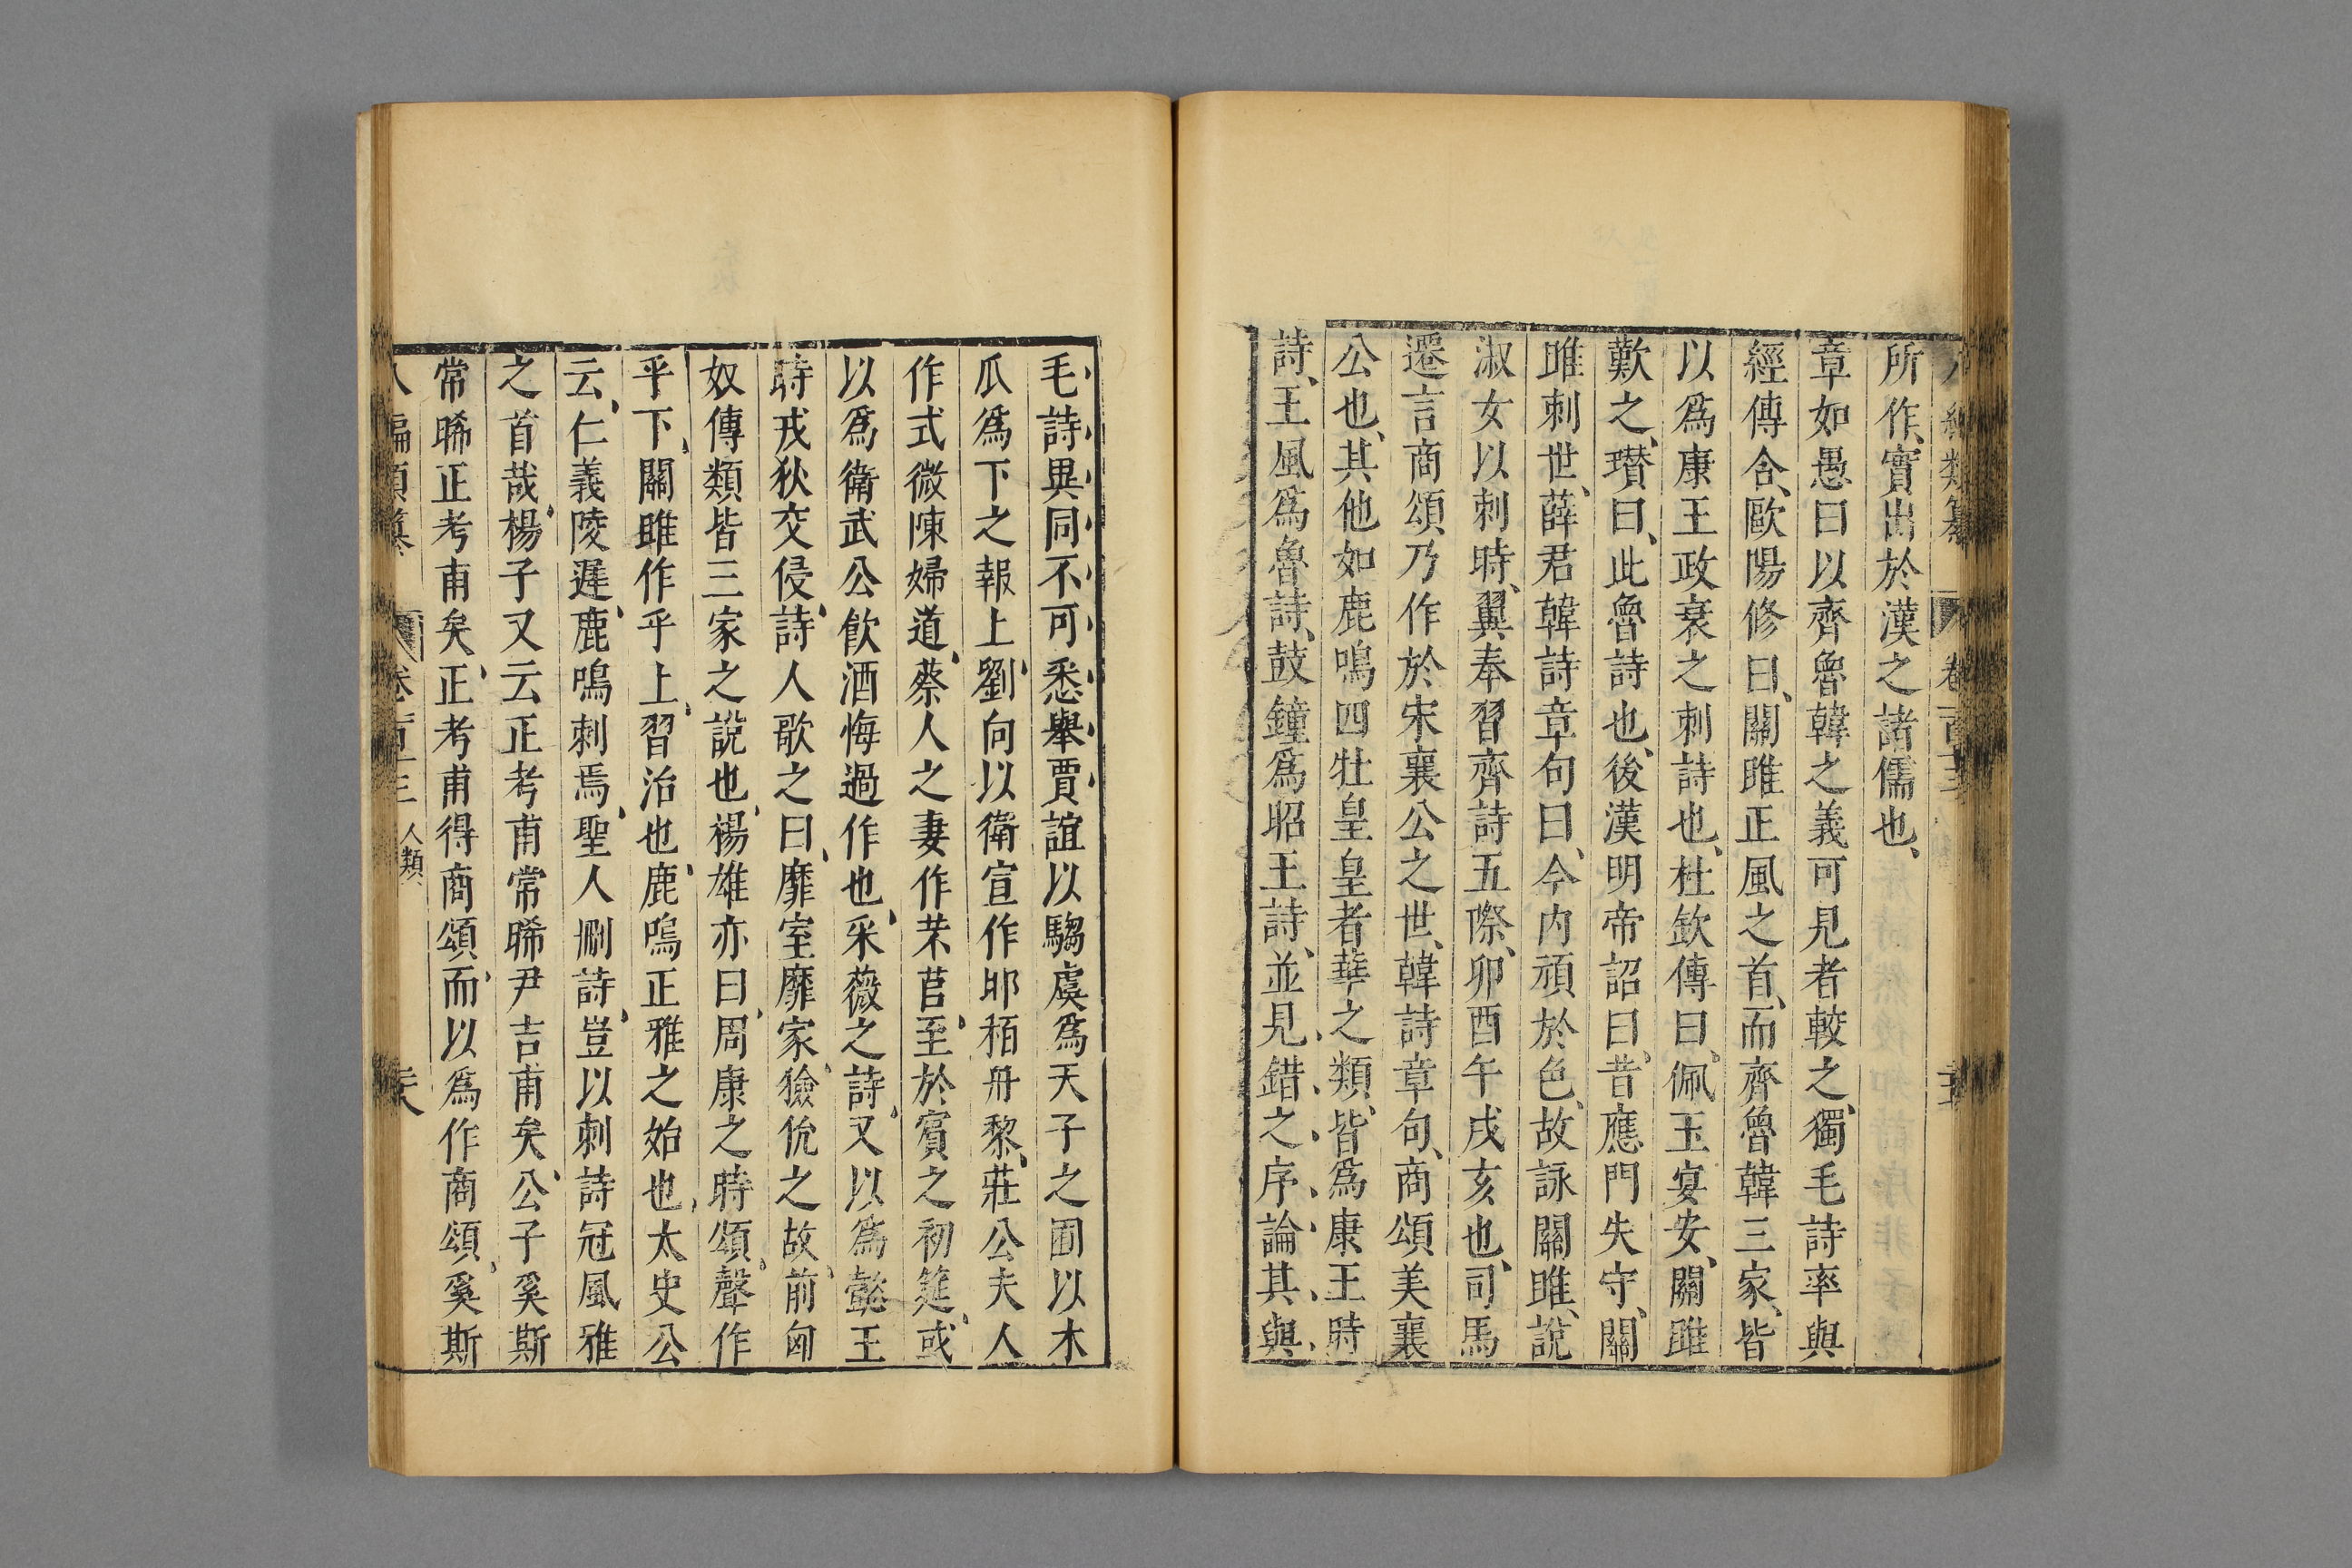 所作、實出於漢之諸儒也、
章如愚曰以齊魯韓之義可見者較之、獨毛詩率與
經傳合、歐陽修曰、關雎正風之首、而齊魯韓三家、皆
以爲康王政衰之刺詩也、杜欽傳曰、佩玉宴安、關雎
歎之、瓉曰、此魯詩也、後漢明帝詔曰、昔應門失守、關
雎刺世、薛君韓詩章句曰、今内頎於色、故詠關雎、說
淑女以刺時、翼奉習齊詩五際、卯酉午戌亥也、司馬
遷言商頌、乃作於宋襄公之世、韓詩章句、商頌美襄
公也、其他如鹿鳴四牡皇皇者華之類、皆爲康王時
詩、王風爲魯詩、鼓鐘爲昭王詩、並見、錯、之、序、論、其、與、
毛詩異同不可悉舉賈誼以騶虞爲天子之囿以木
瓜爲下之報上、劉向以衛宣作邶栢舟黎、莊公夫人
作式微陳婦道、蔡人之妻作芣苢、至於賓之初筵、或
以爲衛武公飲酒悔過作也、采薇之詩、又以爲懿王
時戎狄交侵、詩人歌之曰、靡室靡家、獫狁之故、前匈
奴傳類皆三家之說也、楊雄亦曰、周康之時頌、聲作
乎下、關雎作乎上、習治也、鹿鳴正雅之始也、太史公
云、仁義陵遲、鹿鳴刺焉、聖人刪詩、豈以刺詩冠風雅
之首哉、楊子又云正考甫常睎尹吉甫矣、公子奚斯
常睎正考甫矣、正考甫得商頌、而以爲作商頌、奚斯
人類